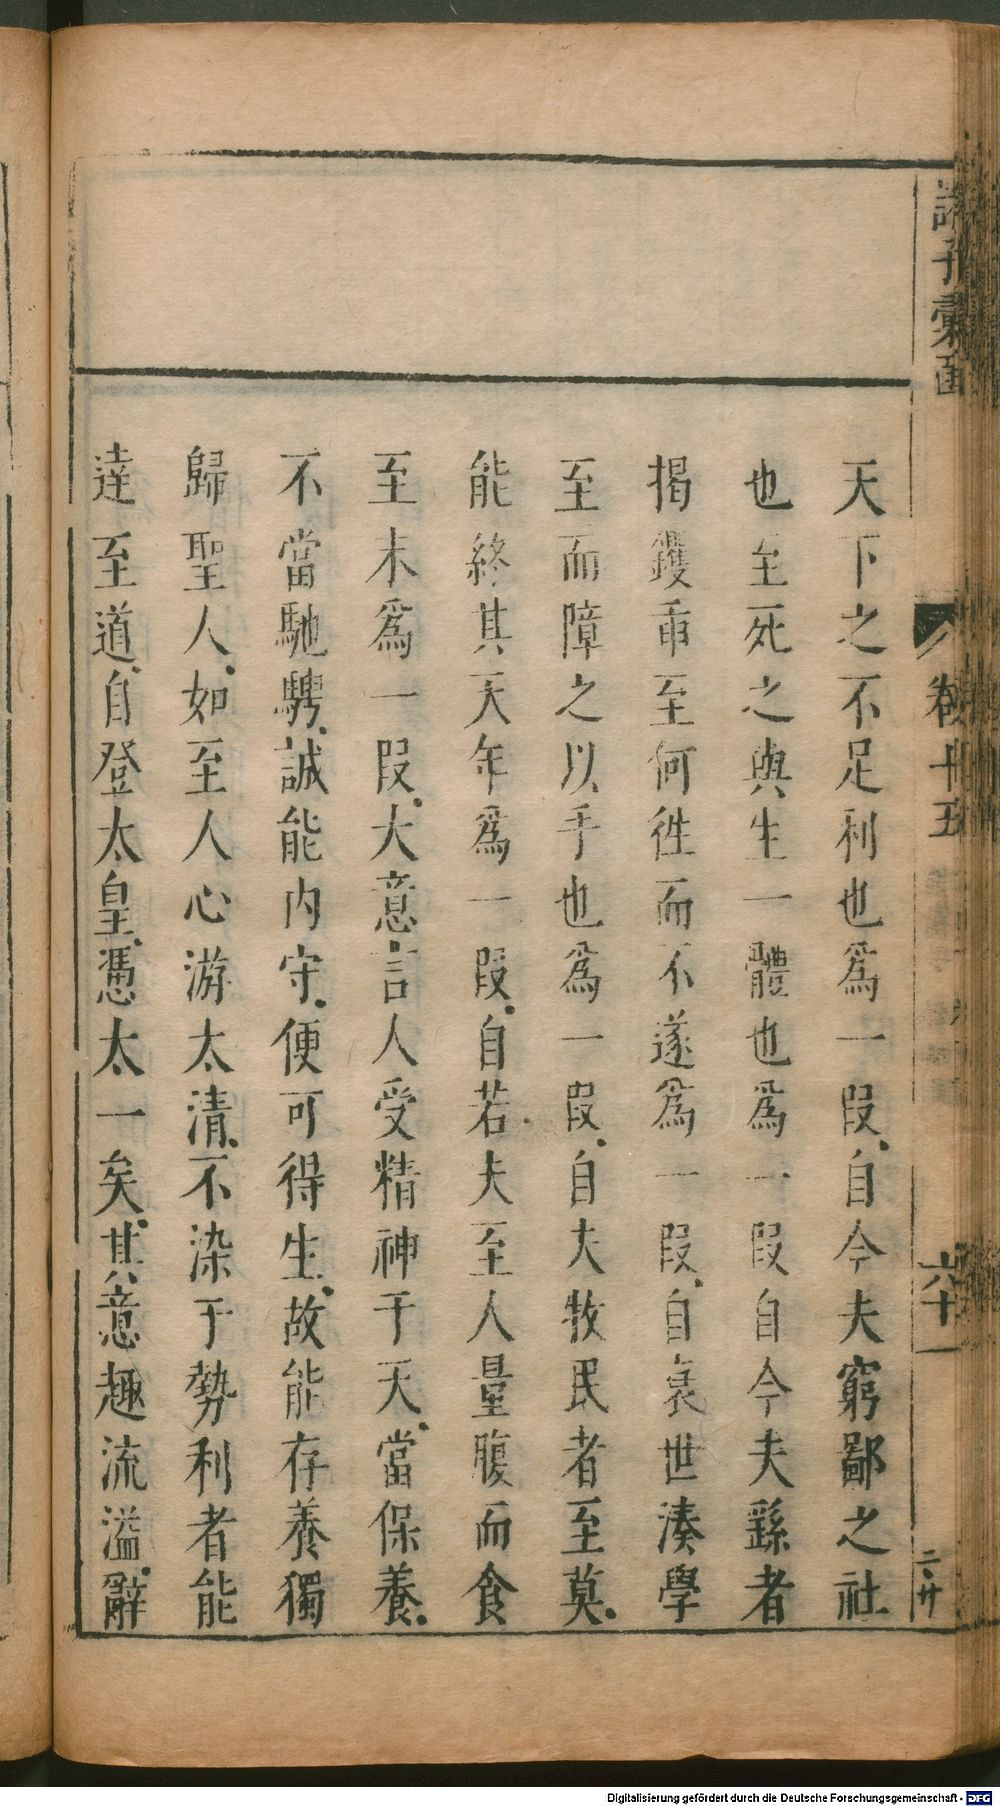 諸子彙函
卷十五
六十一
二廿
天下之不足利也爲一叚自今夫窮鄙之社
也至死之與生一體也爲一叚自今夫繇者
揭钁臿至何徃而不遂爲一叚自衰世湊學
至而障之以手也爲一叚自夫牧民者至莫
能終其天年爲一叚自若夫至人量腹而食
至末爲一叚大意言人受精神于天當保養
不當馳騁誠能内守便可得生故能存養獨
歸聖人如至人心游太清不染于勢利者能
達至道自登太皇憑太一矣其意趣流溢辭
Digitalisierung gefördert durch die Deutsche Forschungsgemeinschaft - DFG